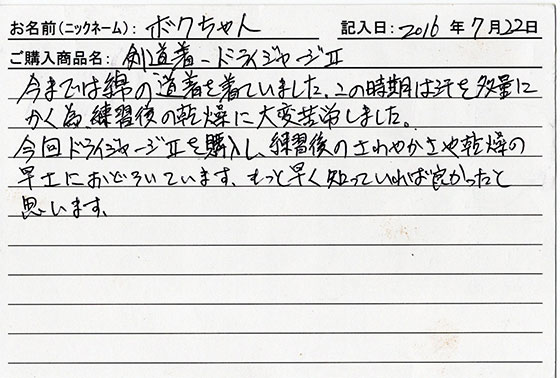 お名前(ニックネーム): ボクちゃん 記入日: 2016 年 7月 22日
ご購入商品名: 剣道着-ドライジャージⅡ
今までは綿の道着を着ていました。この時期は汗を多量に
かく為、練習後の乾燥に大変苦労しました。
今回ドライジャージⅡを購入し、練習後のさわやかさや乾燥の
早士におどろいています。もっと早く知っていれば良かったと
思います。